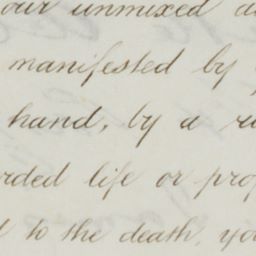 our unmixed
manifested by
hand, by a
life or
to the death, yo